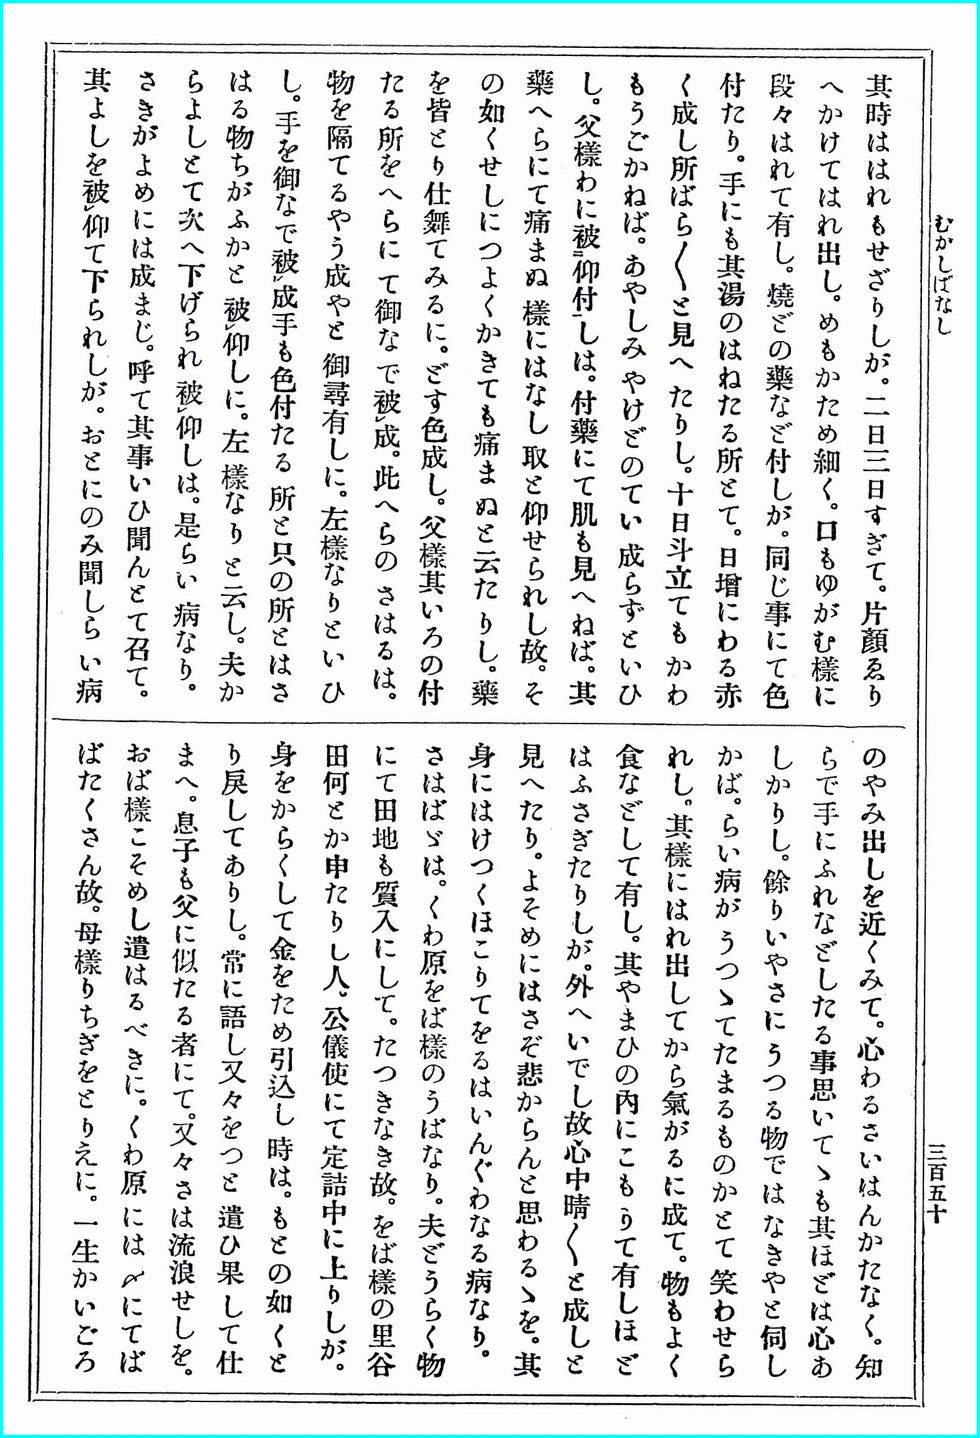 むかしばなし
三百五十
其時ははれもせざりしが。二日三日すぎて。片顔ゑり
へかけてはれ出し。めもかため細く。口もゆがむ樣に
段々はれて有し。燒どの藥など付しが。同じ事にて色
付たり。手にも其湯のはねたる所とて。日增にわる赤
く成し所ばら〱と見へたりし。十日斗立てもかわ
もうごかねば。あやしみやけどのてい成らずといひ
し。父樣わに被㆓仰付㆒しは。付藥にて肌も見へねば。其
藥へらにて痛まぬ樣にはなし取と仰せられし故。そ
の如くせしにつよくかきても痛まぬと云たりし。藥
を皆とり仕舞てみるに。どす色成し。父樣其いろの付
たる所をへらにて御なで被㆑成。此へらのさはるは。
物を隔てるやう成やと御尋有しに。左樣なりといひ
し。手を御なで被㆑成手も色付たる所と只の所とはさ
はる物ちがふかと被㆑仰しに。左樣なりと云し。夫か
らよしとて次へ下げられ被㆑仰しは。是らい病なり。
さきがよめには成まじ。呼て其事いひ聞んとて召て。
其よしを被㆑仰て下られしが。おとにのみ聞しらい病
のやみ出しを近くみて。心わるさいはんかたなく。知
らで手にふれなどしたる事思いてゝも其ほどは心あ
しかりし。餘りいやさにうつる物ではなきやと伺し
かば。らい病がうつゝてたまるものかとて笑わせら
れし。其樣にはれ出してから氣がるに成て。物もよく
食などして有し。其やまひの內にこもりて有しほど
はふさぎたりしが。外へいでし故心中晴〱と成しと
見へたり。よそめにはさぞ悲からんと思わるゝを。其
身にはけつくほこりてをるはいんぐわなる病なり。
さはばゞは。くわ原をば樣のうばなり。夫どうらく物
にて田地も質入にして。たつきなき故。をば樣の里谷
田何とか申たりし人。公儀使にて定詰中に上りしが。
身をからくして金をため引込し時は。もとの如くと
り戾してありし。常に語し又々をつと遣ひ果して仕
まへ。息子も父に似たる者にて。又々さは流浪せしを。
おば樣こそめし遣はるべきに。くわ原には〆にてば
ばたくさん故。母樣りちぎをとりえに。一生かいごろ